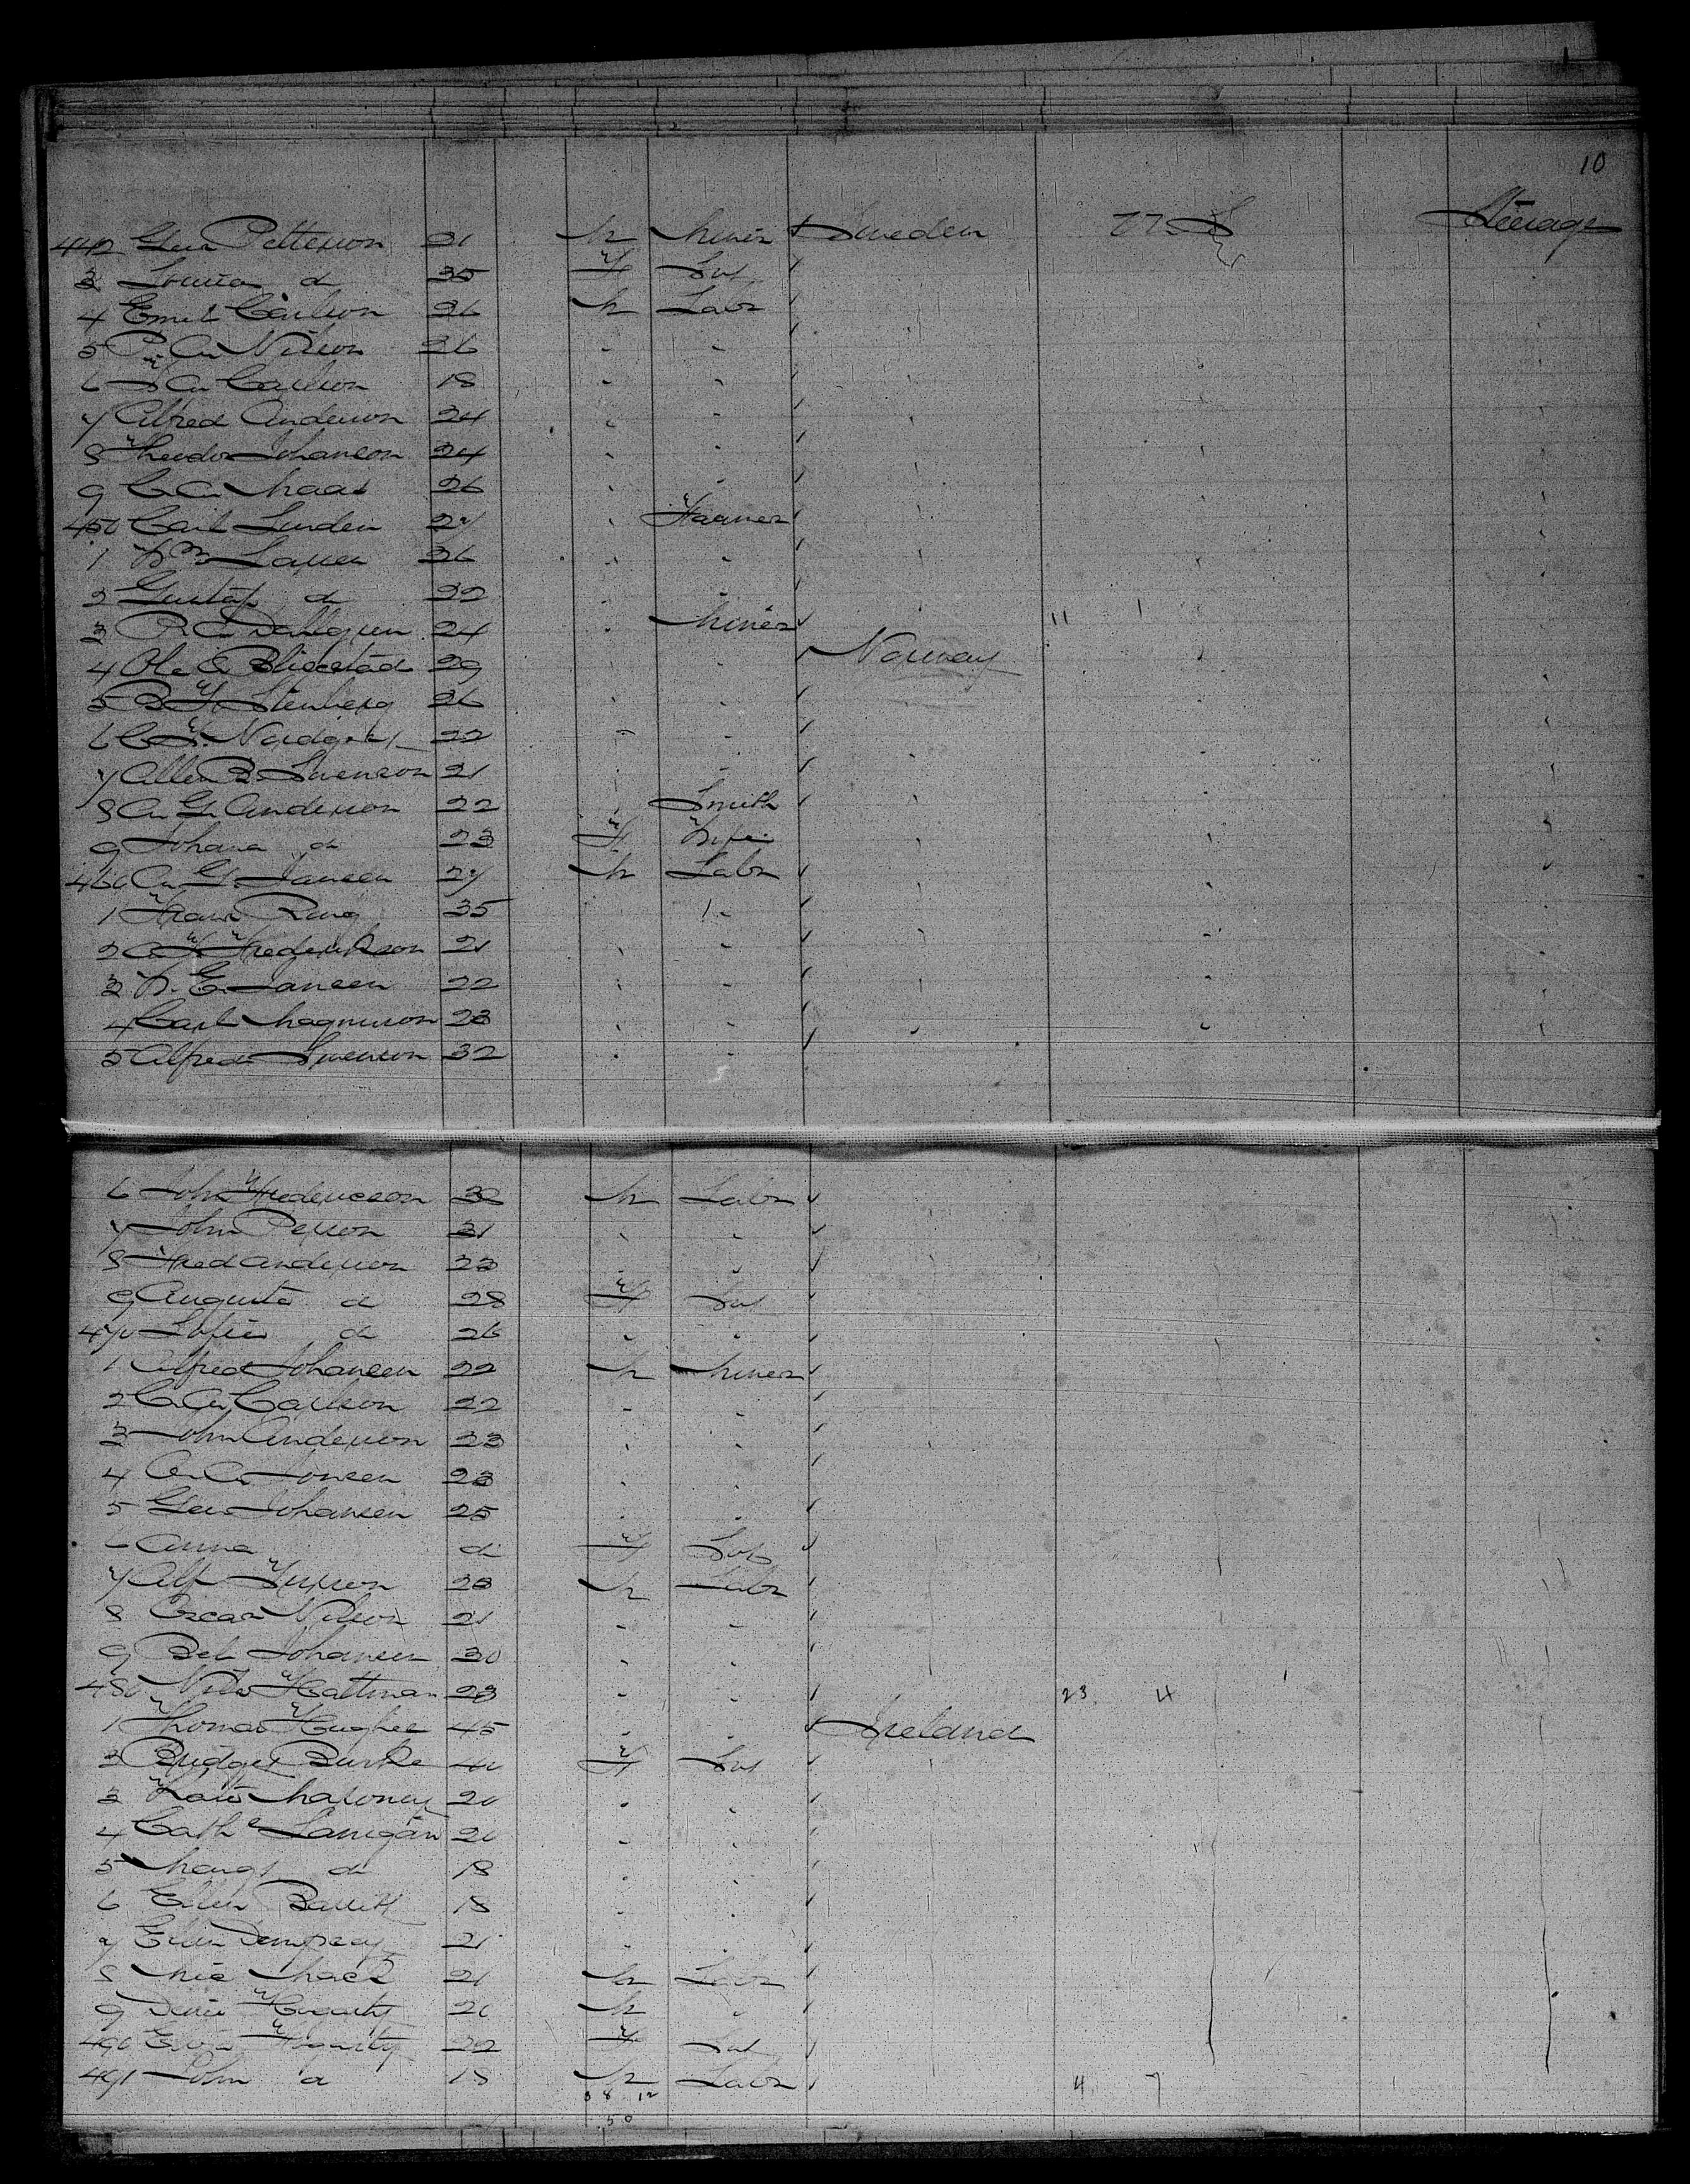 10
442 Geo Petterson 21 M Miner Sweden U.S. Steerage
3 Louisa do 35 F Svt
4 Emil Carlson 26 M Labr
5 P. A. Nilson 26 " "
6 F A Carlson 18 " "
7 Alfred Anderson 24 " "
8 Theodor Johanson 24 " "
9 C. A. Maas 26 " "
450 Carl Linden 27 " Farmer
1 Wm Larsen 26 " "
2 Gustaf do 22 " "
3 24 " Miner 11 1
4 Ole 29 " " Norway
5 Stenberg 26 " "
6 22 " "
7 B. Swenson 21 " "
8 A. G. Anderson 22 " Smith
9 Johana do 23 F Wife
460 A. G. Jansen 27 M Labr
1 Ring 35 "
2 Frederikson 21 " "
3 W. E. Jansen 22 " "
4 Carl Magnuson 23 " "
5 Alfred Swenson 32 " "
6 John Fredericson 32 M Labr
7 John Person 21 " "
8 Fred Anderson 22 " "
9 Augusta do 28 F Svt
470 Sofia do 26 " "
1 Alfred Johansen 22 M Miner
2 C. A. Carlson 22 " "
3 John Anderson 23 " "
4 Jonsen 23 " "
5 Geo Johansen 25 " "
6 Anna do F Svt
7 Alf 23 M Labr
8 Oscar Nilson 21 " "
9 Johansen 30 " "
480 Nils Hallman 23 " " 23 4
1 Thomas Hughes 45 " " Ireland
2 Bridget Burke 40 F Svt
3 Kate Maloney 20 " "
4 Cathe Lanigan 20 " "
5 Margt do 18 " "
6 Ellen Barrett 18 " "
7 Ellen Dempsey 21 " "
8 Mic Mack 21 M Labr
9 Hegarty 20 M "
490 Hegarty 22 F Svt
491 John do 18 M Labr 4 7
38 12
50